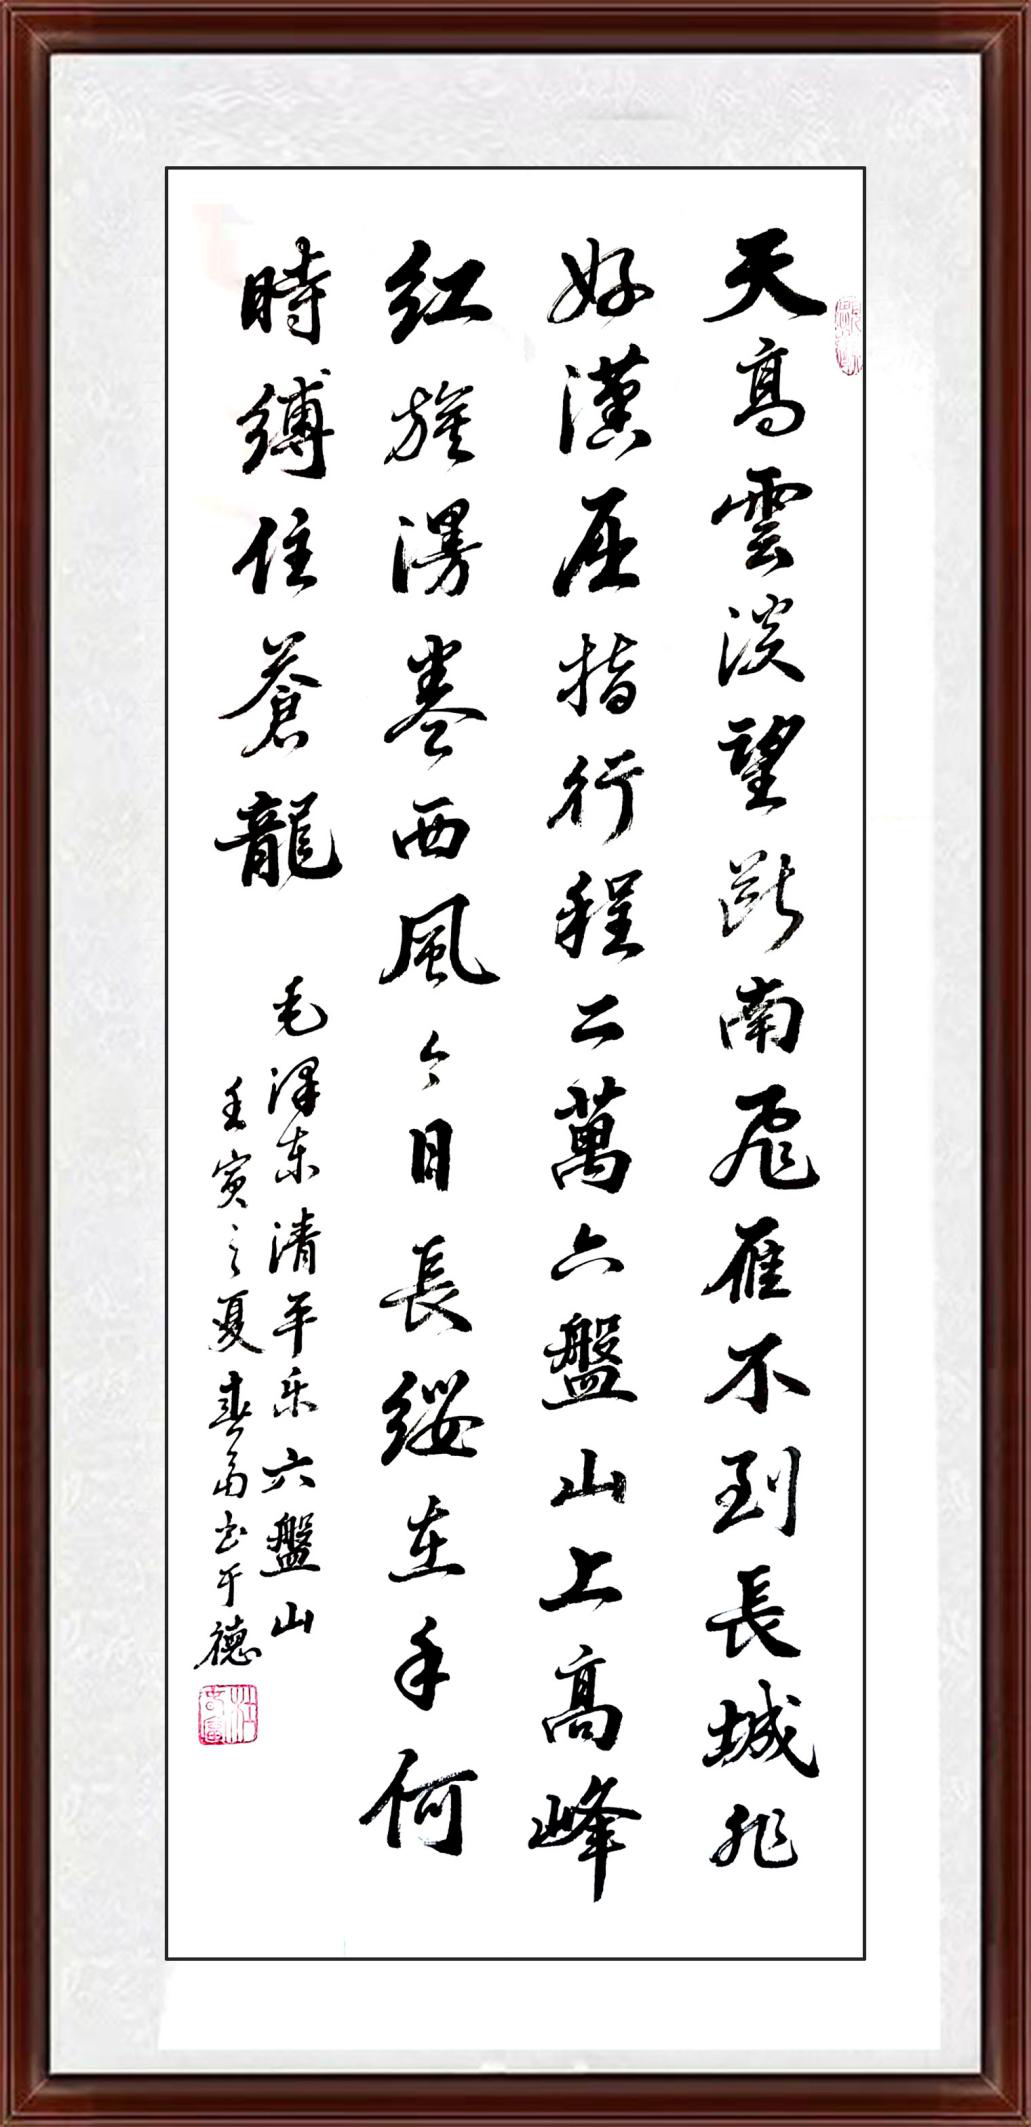 天高雲淡望断南飛雁不到長城非
好漢屈指行程二萬六盤山上高峰
红旗漫卷西風今日長缨在手何
時縛住蒼龍
毛泽东清平乐六盤山
壬寅之夏春富书于德